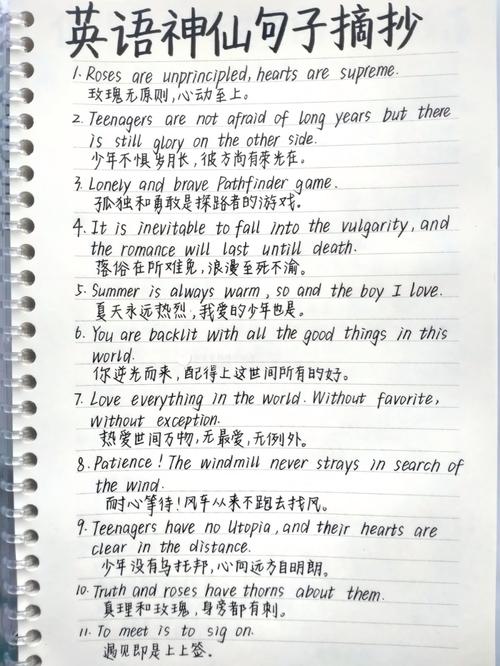 英语神仙句子摘抄
1. Roses are unprincipled, hearts are supreme.
玫瑰无原则,心动至上。
2. Teenagers are not afraid of long years but there
is still glory on the other side.
少年不惧岁月长，彼方尚有荣光在。
3. Lonely and brave Pathfinder game.
孤独和勇敢是探路者的游戏。
4. It is inevitable to fall into the vulgarity, and
the romance will last untill death.
落俗在所难免，浪漫至死不渝。
5. Summer is always warm, so and the boy I love.
夏天永远热烈，我爱的少年也是。
6. You are backlit with all the good things in this
world.
你逆光而来，配得上这世间所有的好。
7. Love everything in the world. Without favorite,
without exception.
热爱世间万物，无最爱，无例外。
8. Patience! The windmill never strays in search of
the wind.
耐心等待!风车从来不跑去找风。
9. Teenagers have no Utopia, and their hearts are
clear in the distance.
少年没有乌托邦，心向远方自明朗。
10. Truth and roses have thorns about them.
真理和玫瑰，身旁都有刺。
11. To meet is to sig on.
遇见即是上上签。